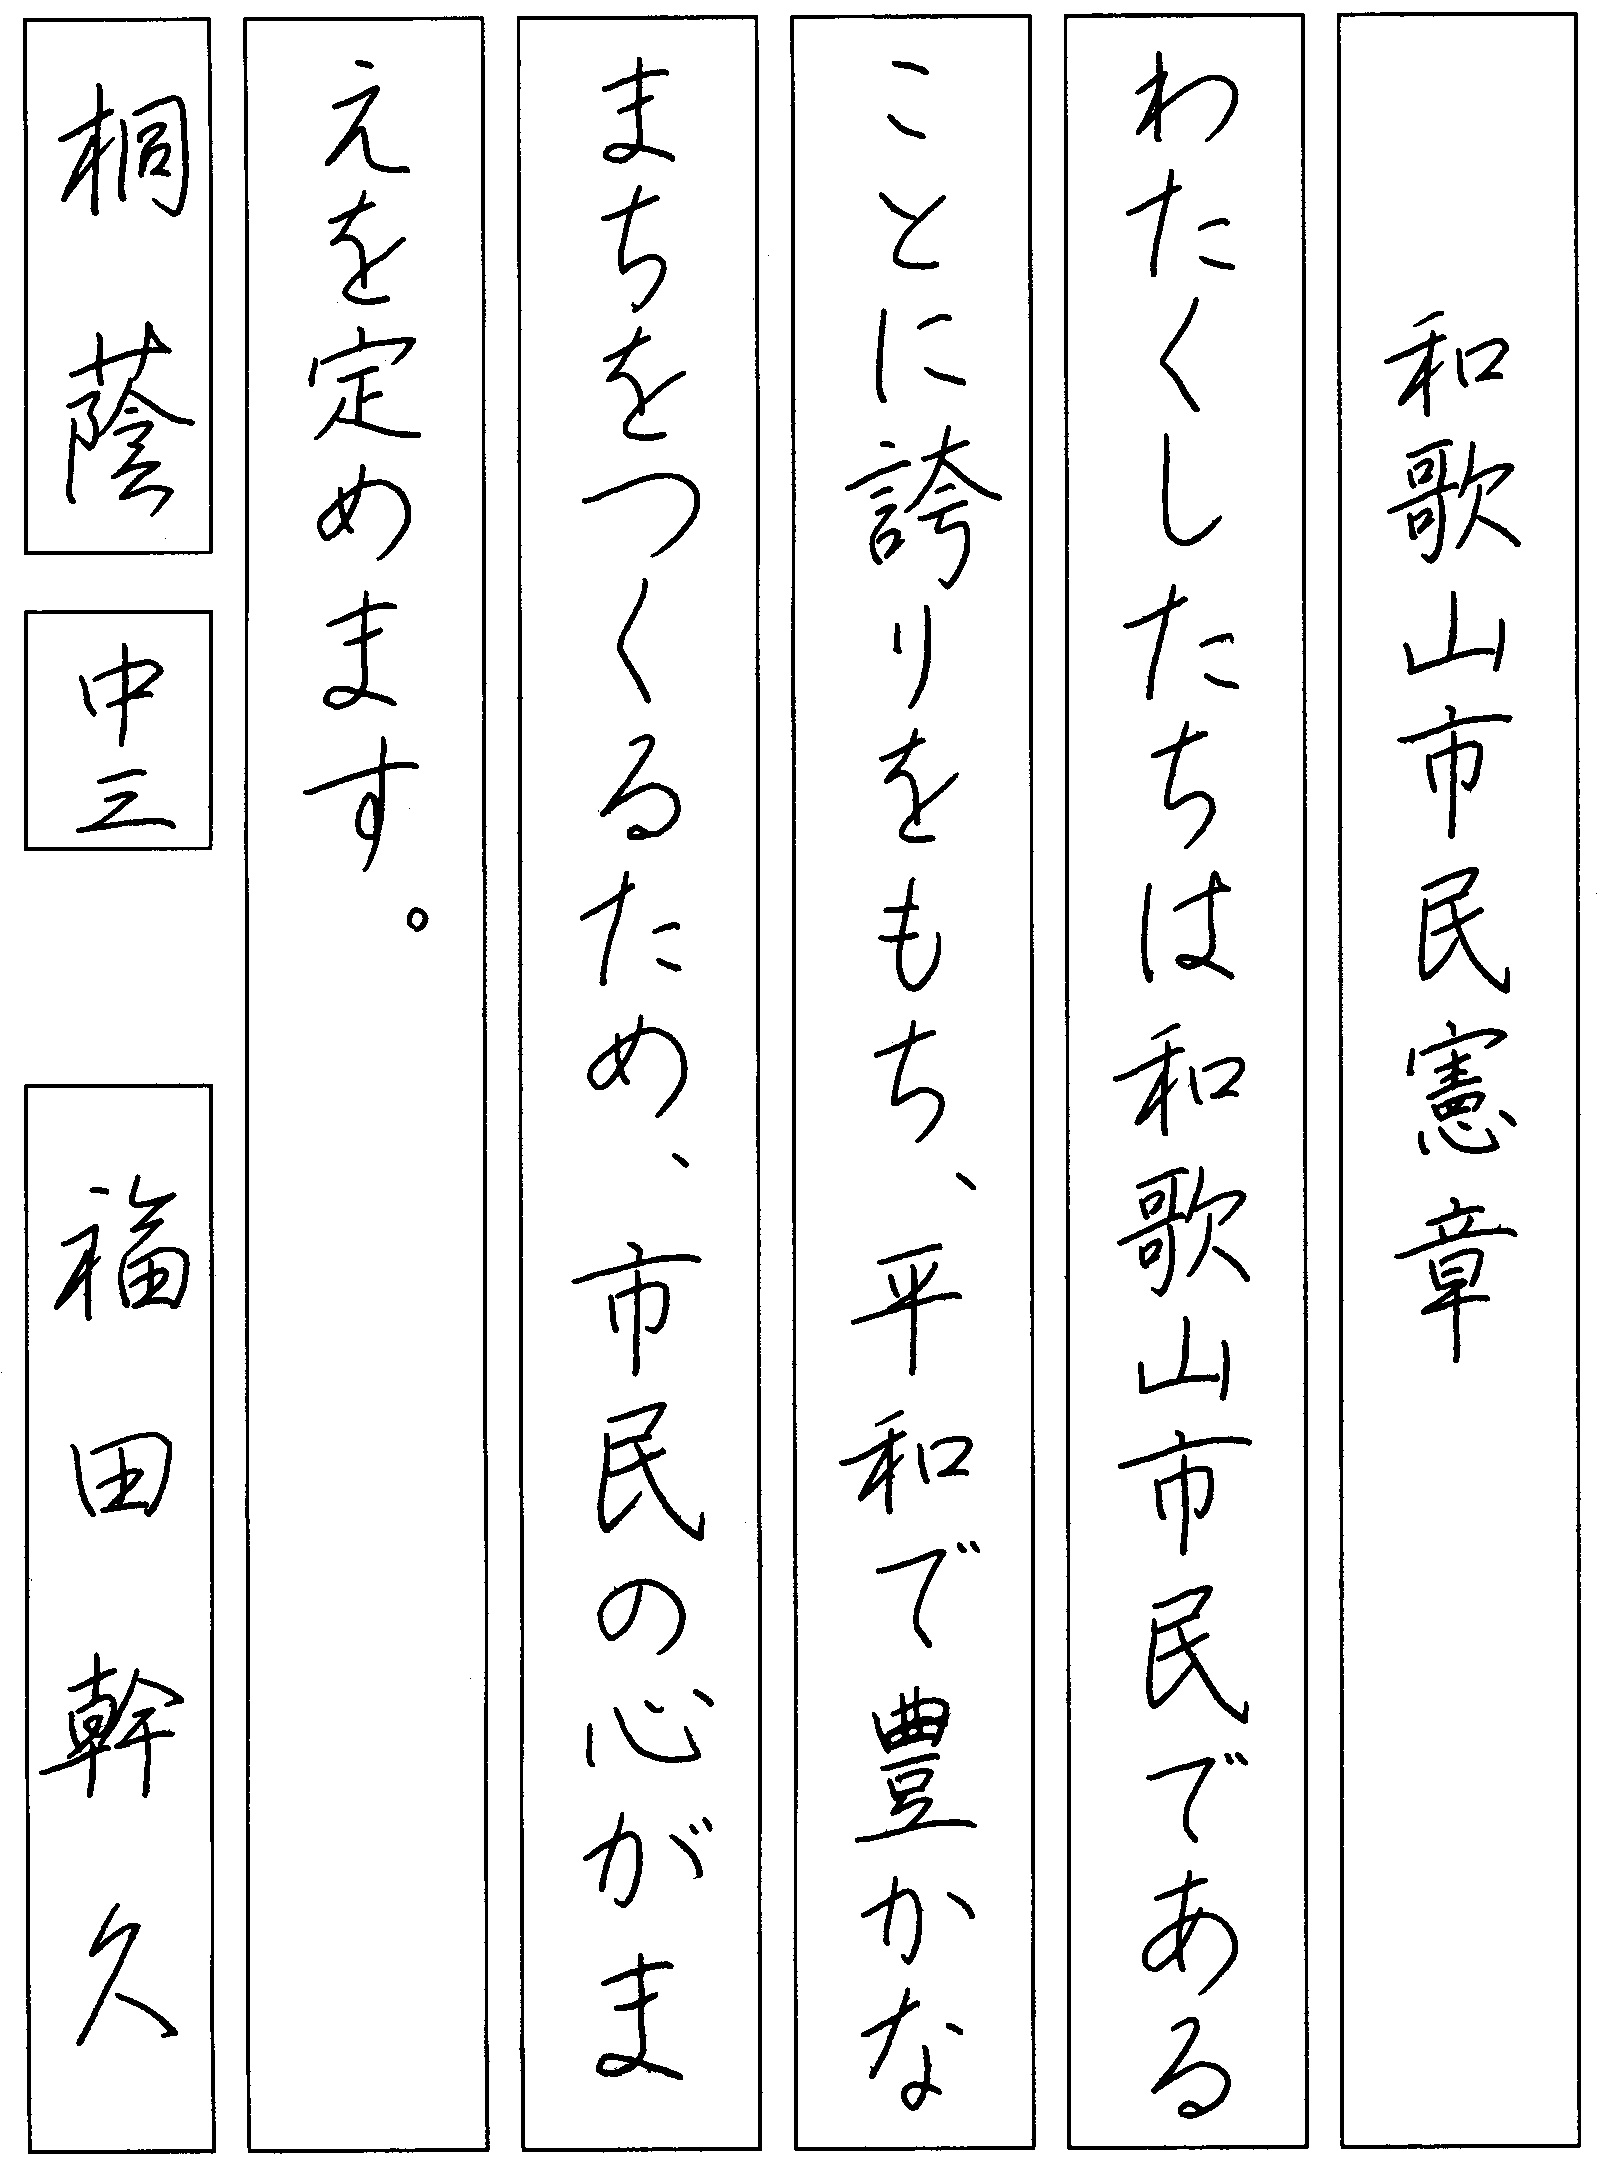 和歌山市民憲章
わたくしたちは和歌山市民である
ことに誇りをもち、平和で豊かな
まちをつくるため、市民の心がま
えを定めます。
桐蔭
中三
福田幹久